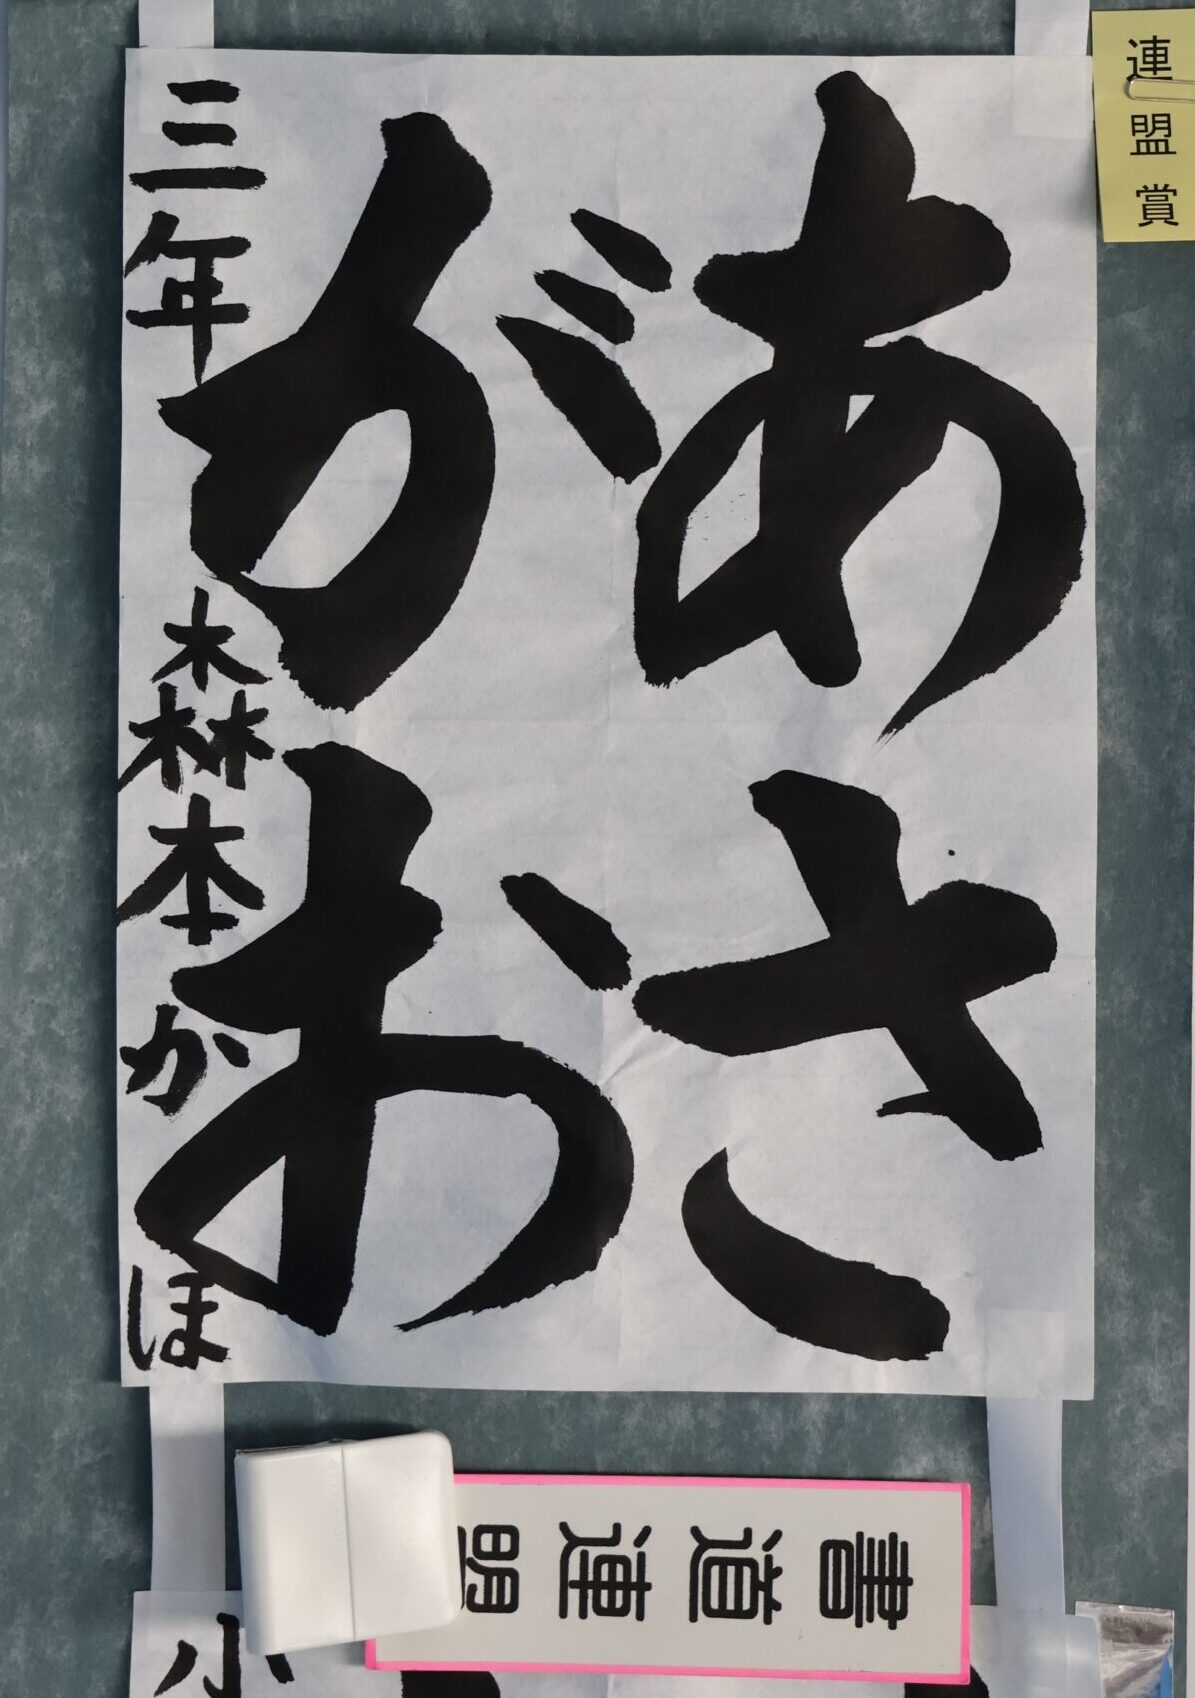 連盟賞
あさ
がお
三年 森本かほ
書道連盟
小